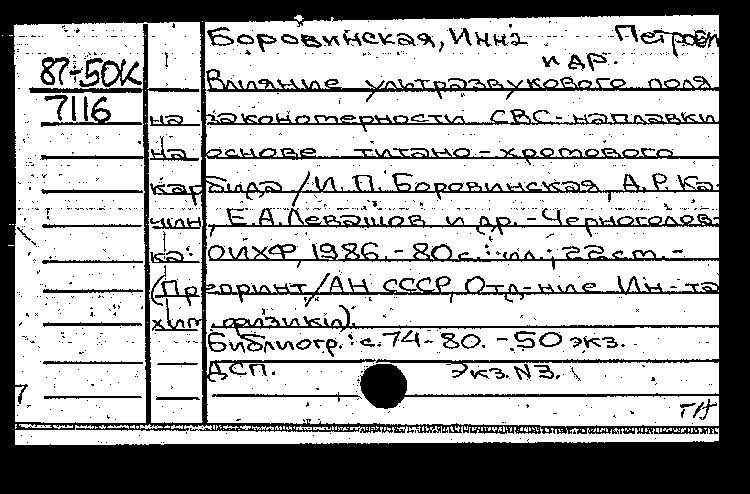 Боровинская, Инна Петровн
и др.
87-50К
Влияние ультразвукового поля
7116
на закономерности СВС-наплавки
на основе титано-хромового
карбида / И. П. Боровинская, А. Р. Ка-
чин, Е. А. Левашов и др. - Черноголов-
ка: ОИХФ, 1986. - 80 с.: ил.; 22 см. -
(Препринт / АН СССР, Отд-ние Ин-та
хим. физики).
Библиогр.: с. 74-80. - 50 экз.
ДСП. Экз. №3.
7